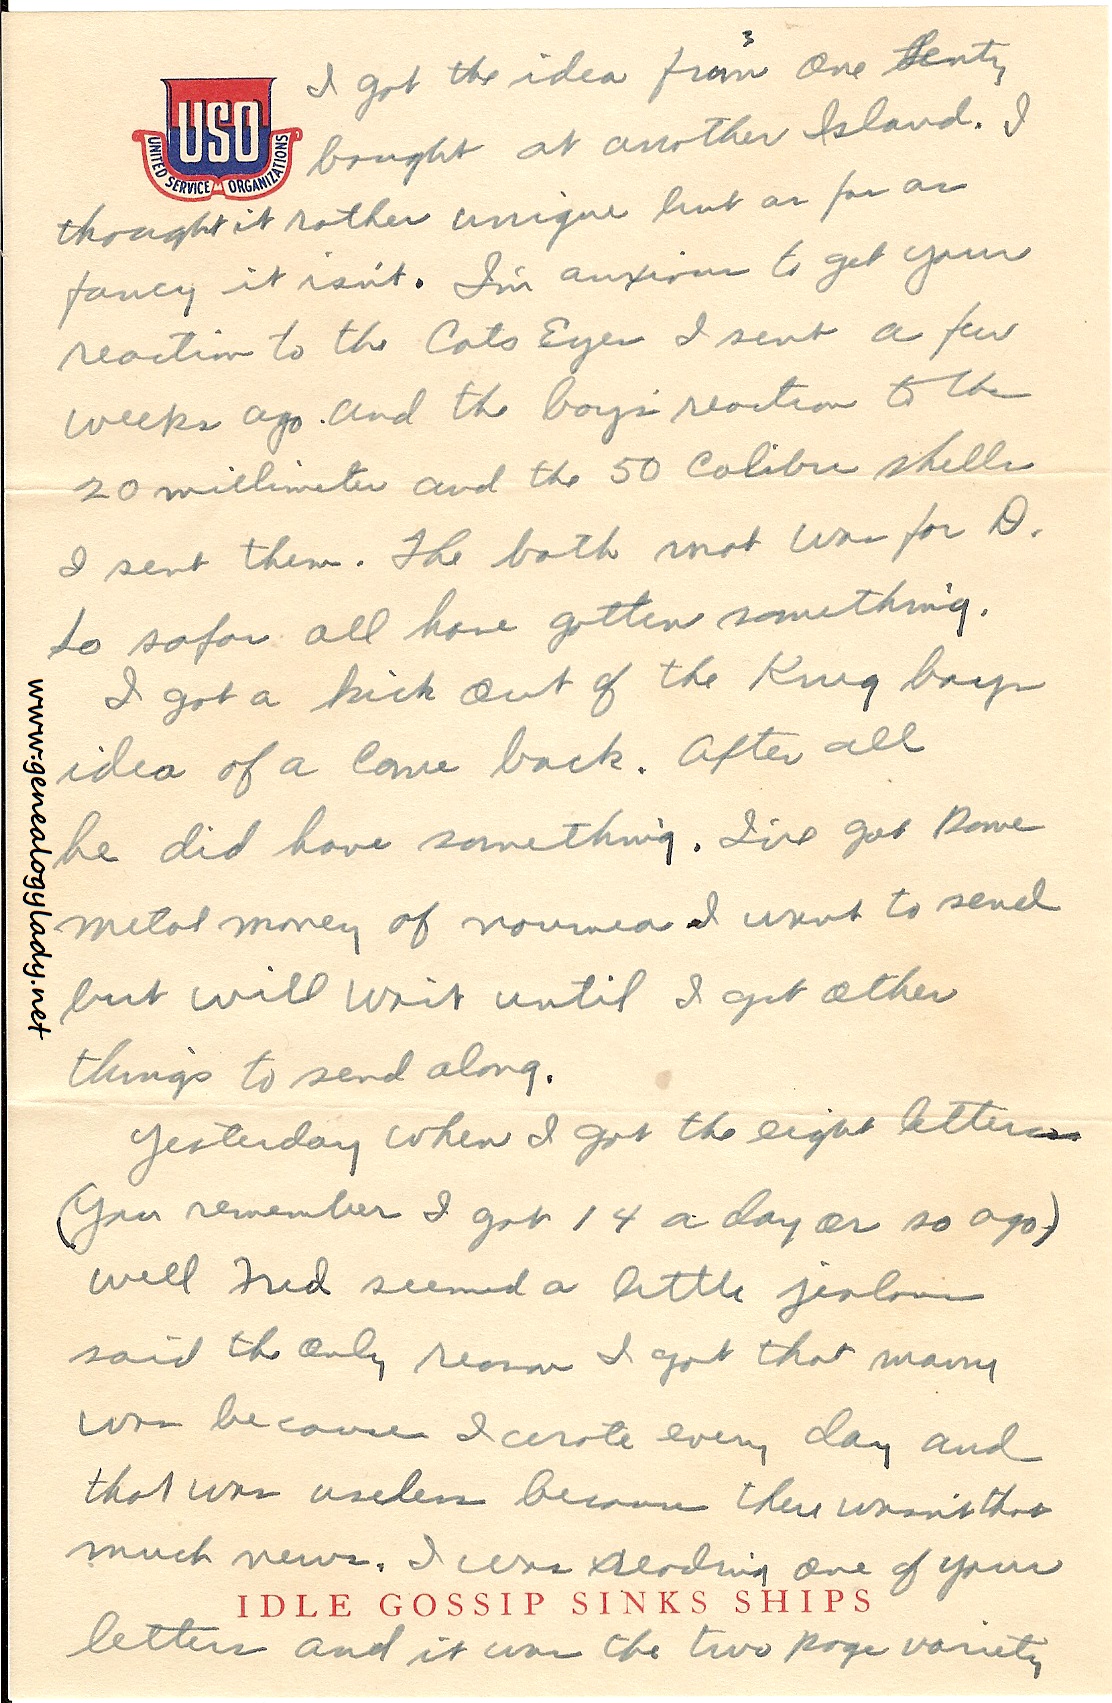 3
I got the idea from one Senty
USO
UNITED SERVICE ORGANIZATIONS
bought at another Island. I
thought it rather unique but as far as
fancy it isn't. I'm anxious to get your
reaction to the Cats Eyes I sent a few
weeks ago. and the boys reaction to the
20 millimeter and the 50 Calibre shells
I sent them. The bath mat was for D.
so sofar all have gotten something.
I got a kick out of the Krug boys
idea of a Come back. After all
he did have something. I've got some
metal money of noumea I want to send
but will wait until I get other
things to send along.
Yesterday when I got the eight letters
(You remember I got 14 a day or so ago)
well Fred seemed a little jealous
said the only reason I got that many
was because I wrote every day and
that was useless because there wasn't that
much news. I was reading one of your
IDLE GOSSIP SINKS SHIPS
letters and it was the two page variety
www.genealogylady.net